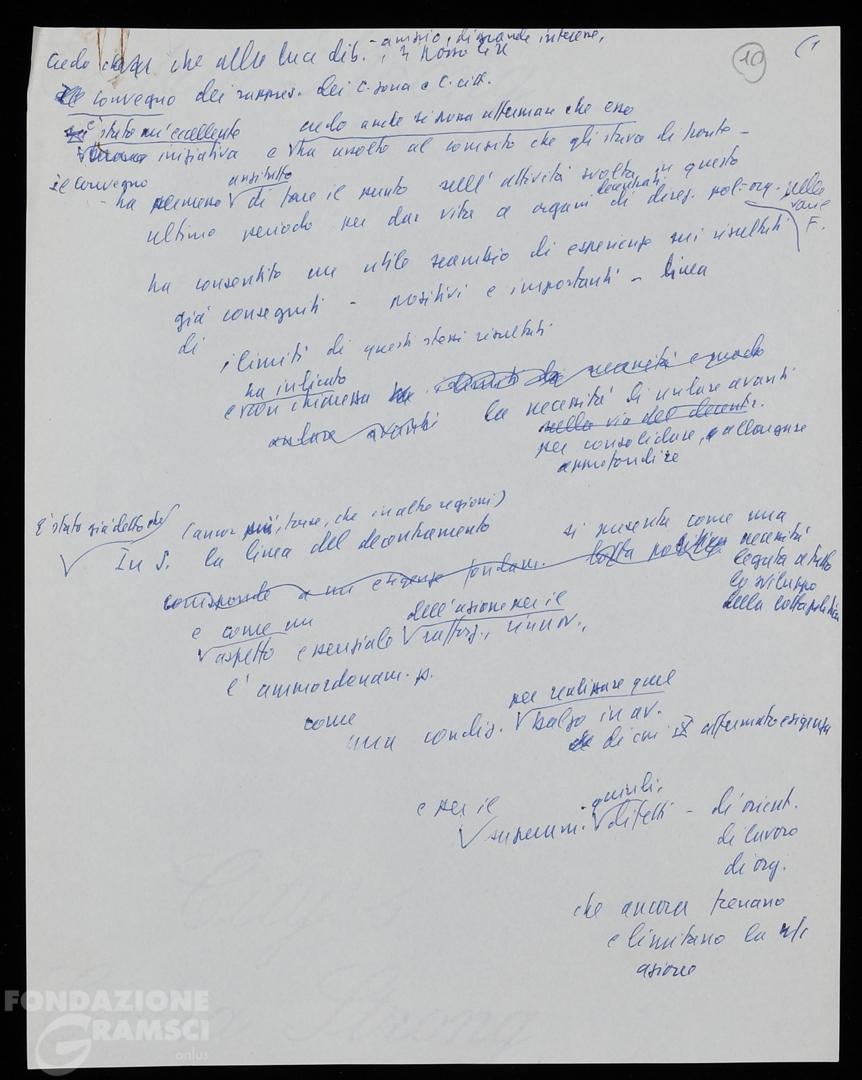 10
(1
- ampio, di grande interesse,
Credo che alla luce dib. , si possa dire
convegno dei rappres. dei C. zona e C. citt.
è stato un'eccellente credo anche si possa affermare che esso
iniziativa e ha assolto al compito che gli stava di fronte -
il convegno anzitutto
- ha permesso di fare il punto sull'attività svolta in questo
decentrati
ultimo periodo per dar vita a organi di direz. pol-org. nelle
varie
F.
ha consentito un utile scambio di esperienze sui risultati
già conseguiti - positivi e importanti - linea
di
i limiti di questi stessi risultati
ha indicato
e con chiarezza necessità
la necessità di andare avanti
andare avanti nella via del decentr.
per consolidare, e allargare
approfondire
E' stato già detto che (ancor più, forse, che in altre regioni)
In S. la linea del decentramento si presenta come una
corrisponde a un esigenza fondam. lotta politica necessità
legata a tutto
lo sviluppo
della lotta politica
e come un dell'azione per il
aspetto essenziale rafforz., rinnov.,
e l'ammodernam. p.
come per realizzare quel
una condiz. balzo in av.
di cui X affermato esigenza
e per il quindi,
superam. difetti - di orient.
di lavoro
di org.
che ancora frenano
e limitano la ns/
azione
FONDAZIONE
GRAMSCI
onlus